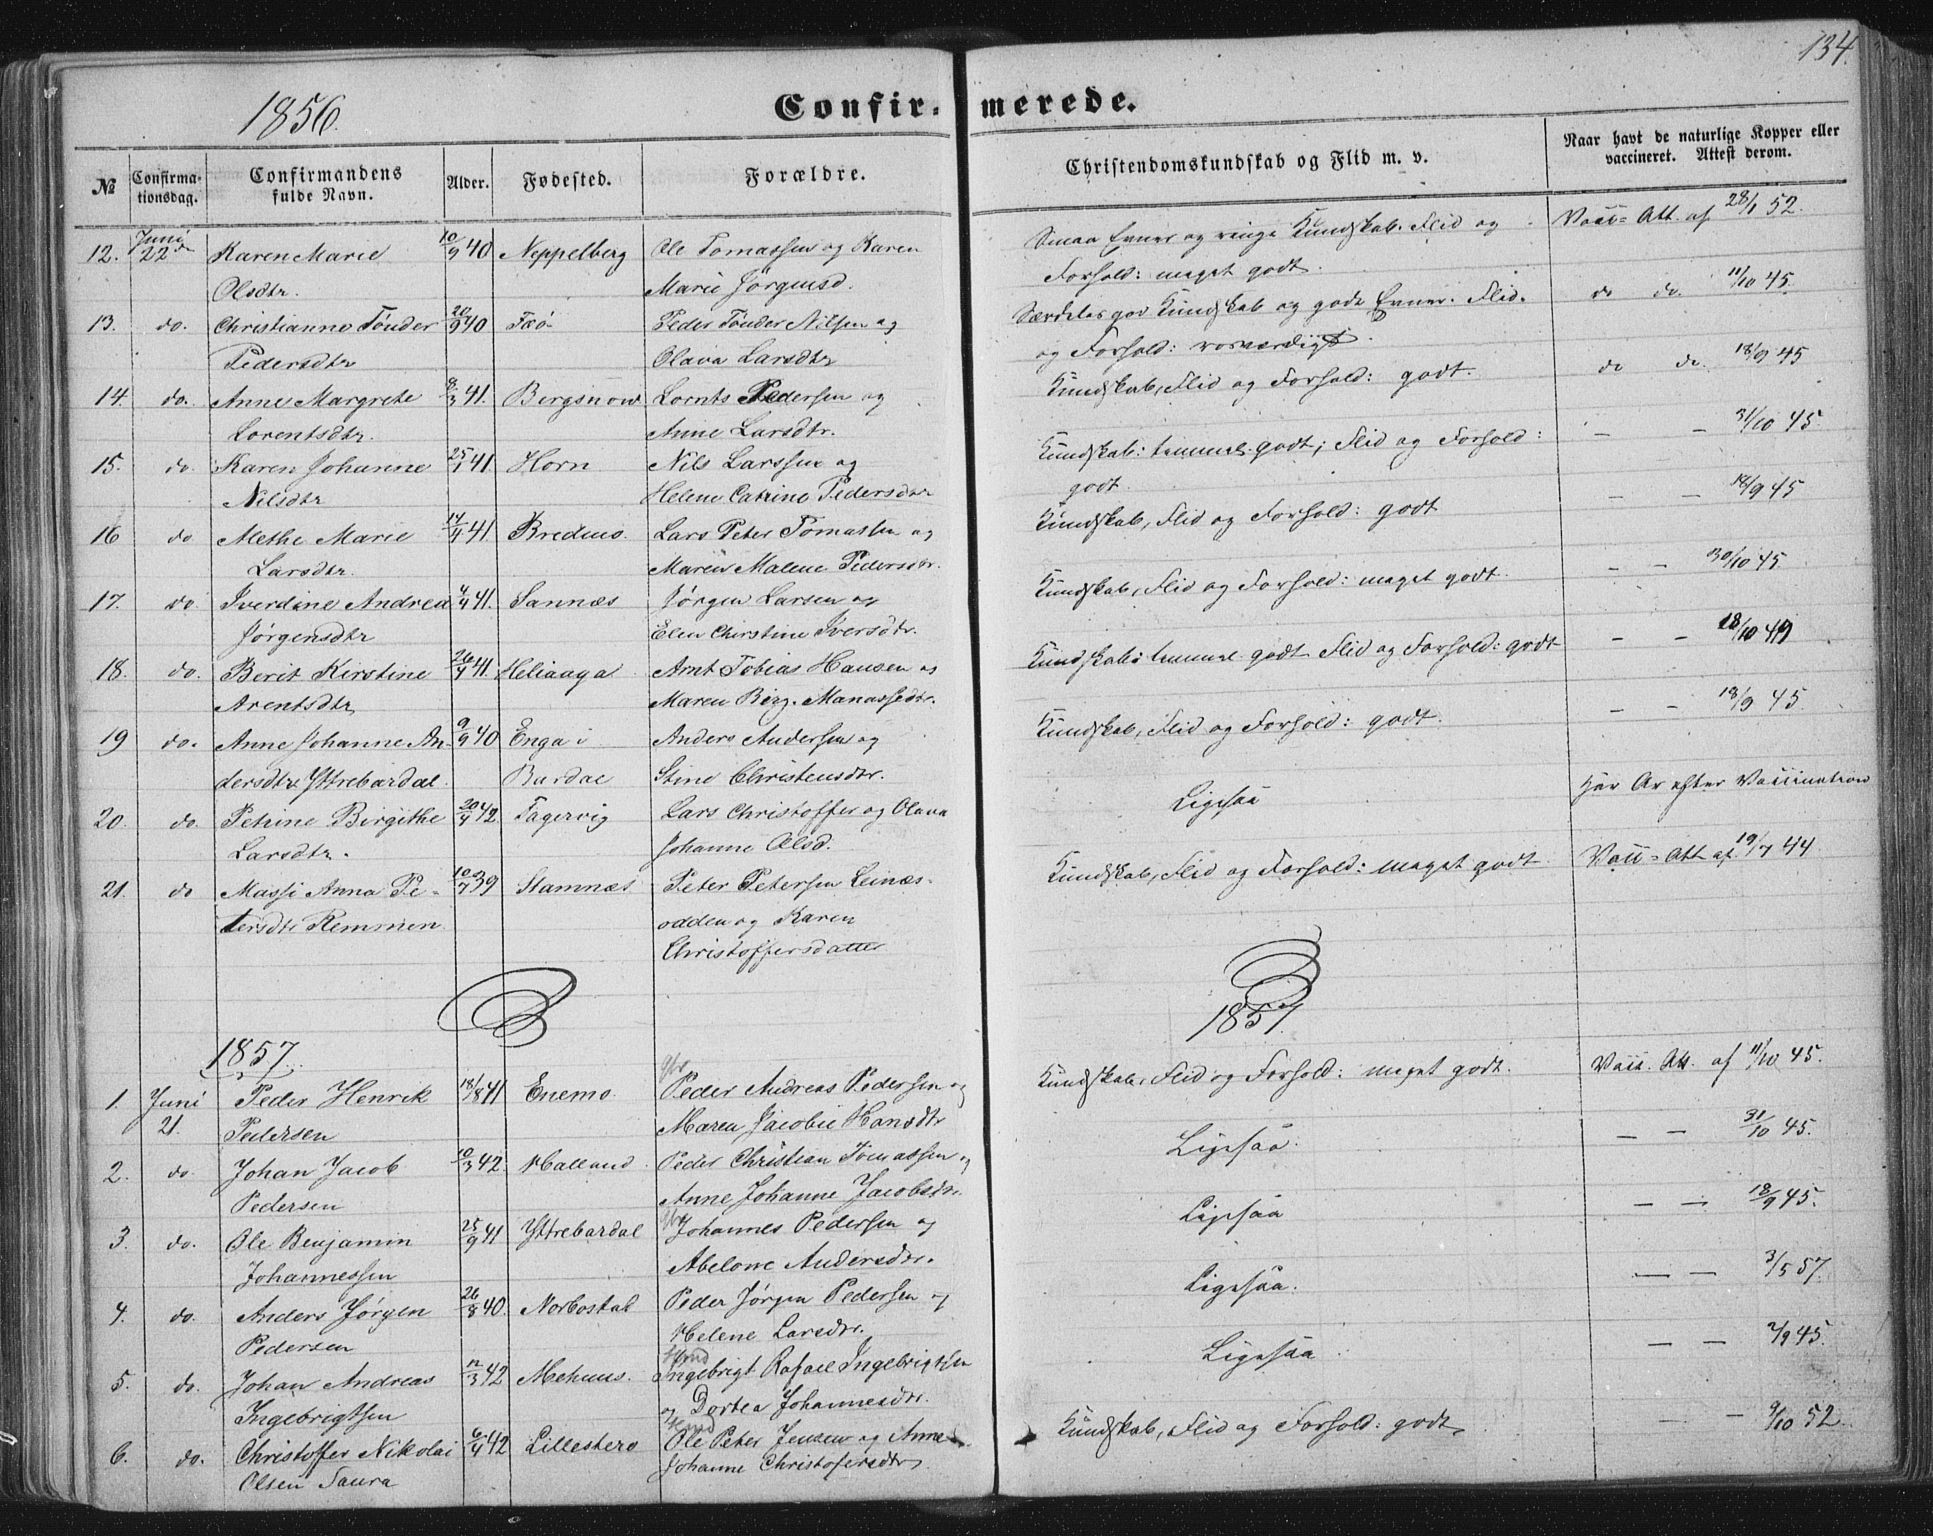 134.
1856.
Confir- merede.
№ Confirma- tionsdag. Confirmandens fulde Navn. Alder. Fødested. Forældre. Christendomskundskab og Flid m. v. Naar havt de naturlige Kopper eller vaccineret. Attest derom.
12. Juni 22de Karen Marie 10/9 40 Neppelberg Ole Tomassen og Karen Smaa Evner og ringe Kundskab. Flid og Vacc= Att. af 28/1 52.
Olsdtr. Marie Jörgensd. Forhold: meget godt.
13. do. Christianne Tönder 20/9 40 Fæö Peder Tönder Nilsen og Særdeles god Kundskab og gode Evner. Flid. do do. 11/10 45.
Pedersdtr Olava Larsdtr og Forhold: rosværdigt.
14. do. Anne Margrete 8/3 41. Bergsnow Lornts Pedersen og Kundskab, Flid og Forhold: godt. do do. 18/9 45
Lorentsdtr. Anne Larsdtr.
15. do Karen Johanne 25/1 41. Horn Nils Larssen og Kundskab: temmel. godt; Flid og Forhold: — — 31/10 45.
Nilsdtr Helene Catrine Pedersdtr godt.
16 do Methe Marie 14/4 41. Bredmo. Lars Peter Tomassen og Kundskab, Flid og Forhold: godt — — 18/9 45
Larsdtr. Maren Malene Pedersdtr.
17. do. Iverdine Andrea 4/4 41. Sannæs Jörgen Larsen og Kundskab, Flid og Forhold: meget godt. — — 30/10 45
Jörgensdtr Elen Chirstine Iversdtr.
18. do. Berit Kirstine 26/4 41. Heliaaga Arnt Tobias Hansen og Kundskab: temmel. godt Flid og Forhold: godt — — 18/10 49
Arentsdtr Maren Birg. Manassedtr.
19 do. Anne Johanne An- 9/9 40 Enga i Anders Andersen og Kundskab, Flid og Forhold: godt. — — 18/9 45.
dersdtr Yttrebardal. Bardal Stine Christensdtr.
20. do. Petrine Birgithe 20/4 42. Fagervig Lars Christoffer og Olava Ligesaa har Ar efter Vaccination
Larsdtr. Johanne Olsd.
21. do Massi Anna Pe- 10/7 39 Stamnæs Peter Petersen Leinæs- Kundskab, Flid og Forhold: meget godt. Vacc= Att af 19/7 44
tersdtr Remmen odden og Karen
Christoffersdatter
1857. 1857.
1. Juni 21. Peder Henrik 18/8 41 Enemo. Peder Andreas Pedersen og Kundskab, Flid og Forhold: meget godt. Vacc. Att. af 11/10 45.
Pedersen Maren Jacobie Hansdtr
2. do Johan Jacob 10/3 42. Halland Peder Christian Tomassen og Ligesaa. — — 31/10 45.
Pedersen Anne Johanne Jacobsdtr.
3. do. Ole Benjamin 25/9 41 Yttrebardal Johannes Pedersen og Ligesaa — — 18/9 45.
Johannessen Abelone Andersdtr.
4. do. Anders Jörgen 26/8 40. Norbostab Peder Jörgen Pedersen og Ligesaa. — — 3/5 57.
Pedersen Helene Larsdtr.
5. do. Johan Andreas 12/3 42 Mehuus. Ingebrigt Rafael Ingebrigtsen Ligesaa — — 2/9 45.
Ingebrigtsen og Dortea Johannesdtr.
6. do. Christoffer Nikolai 6/4 42 Lillestero Ole Peter Jensen og Anne Kundskab, Flid og Forhold: godt, — — 9/10 52.
Olsen Saura Johanne Christofersdtr